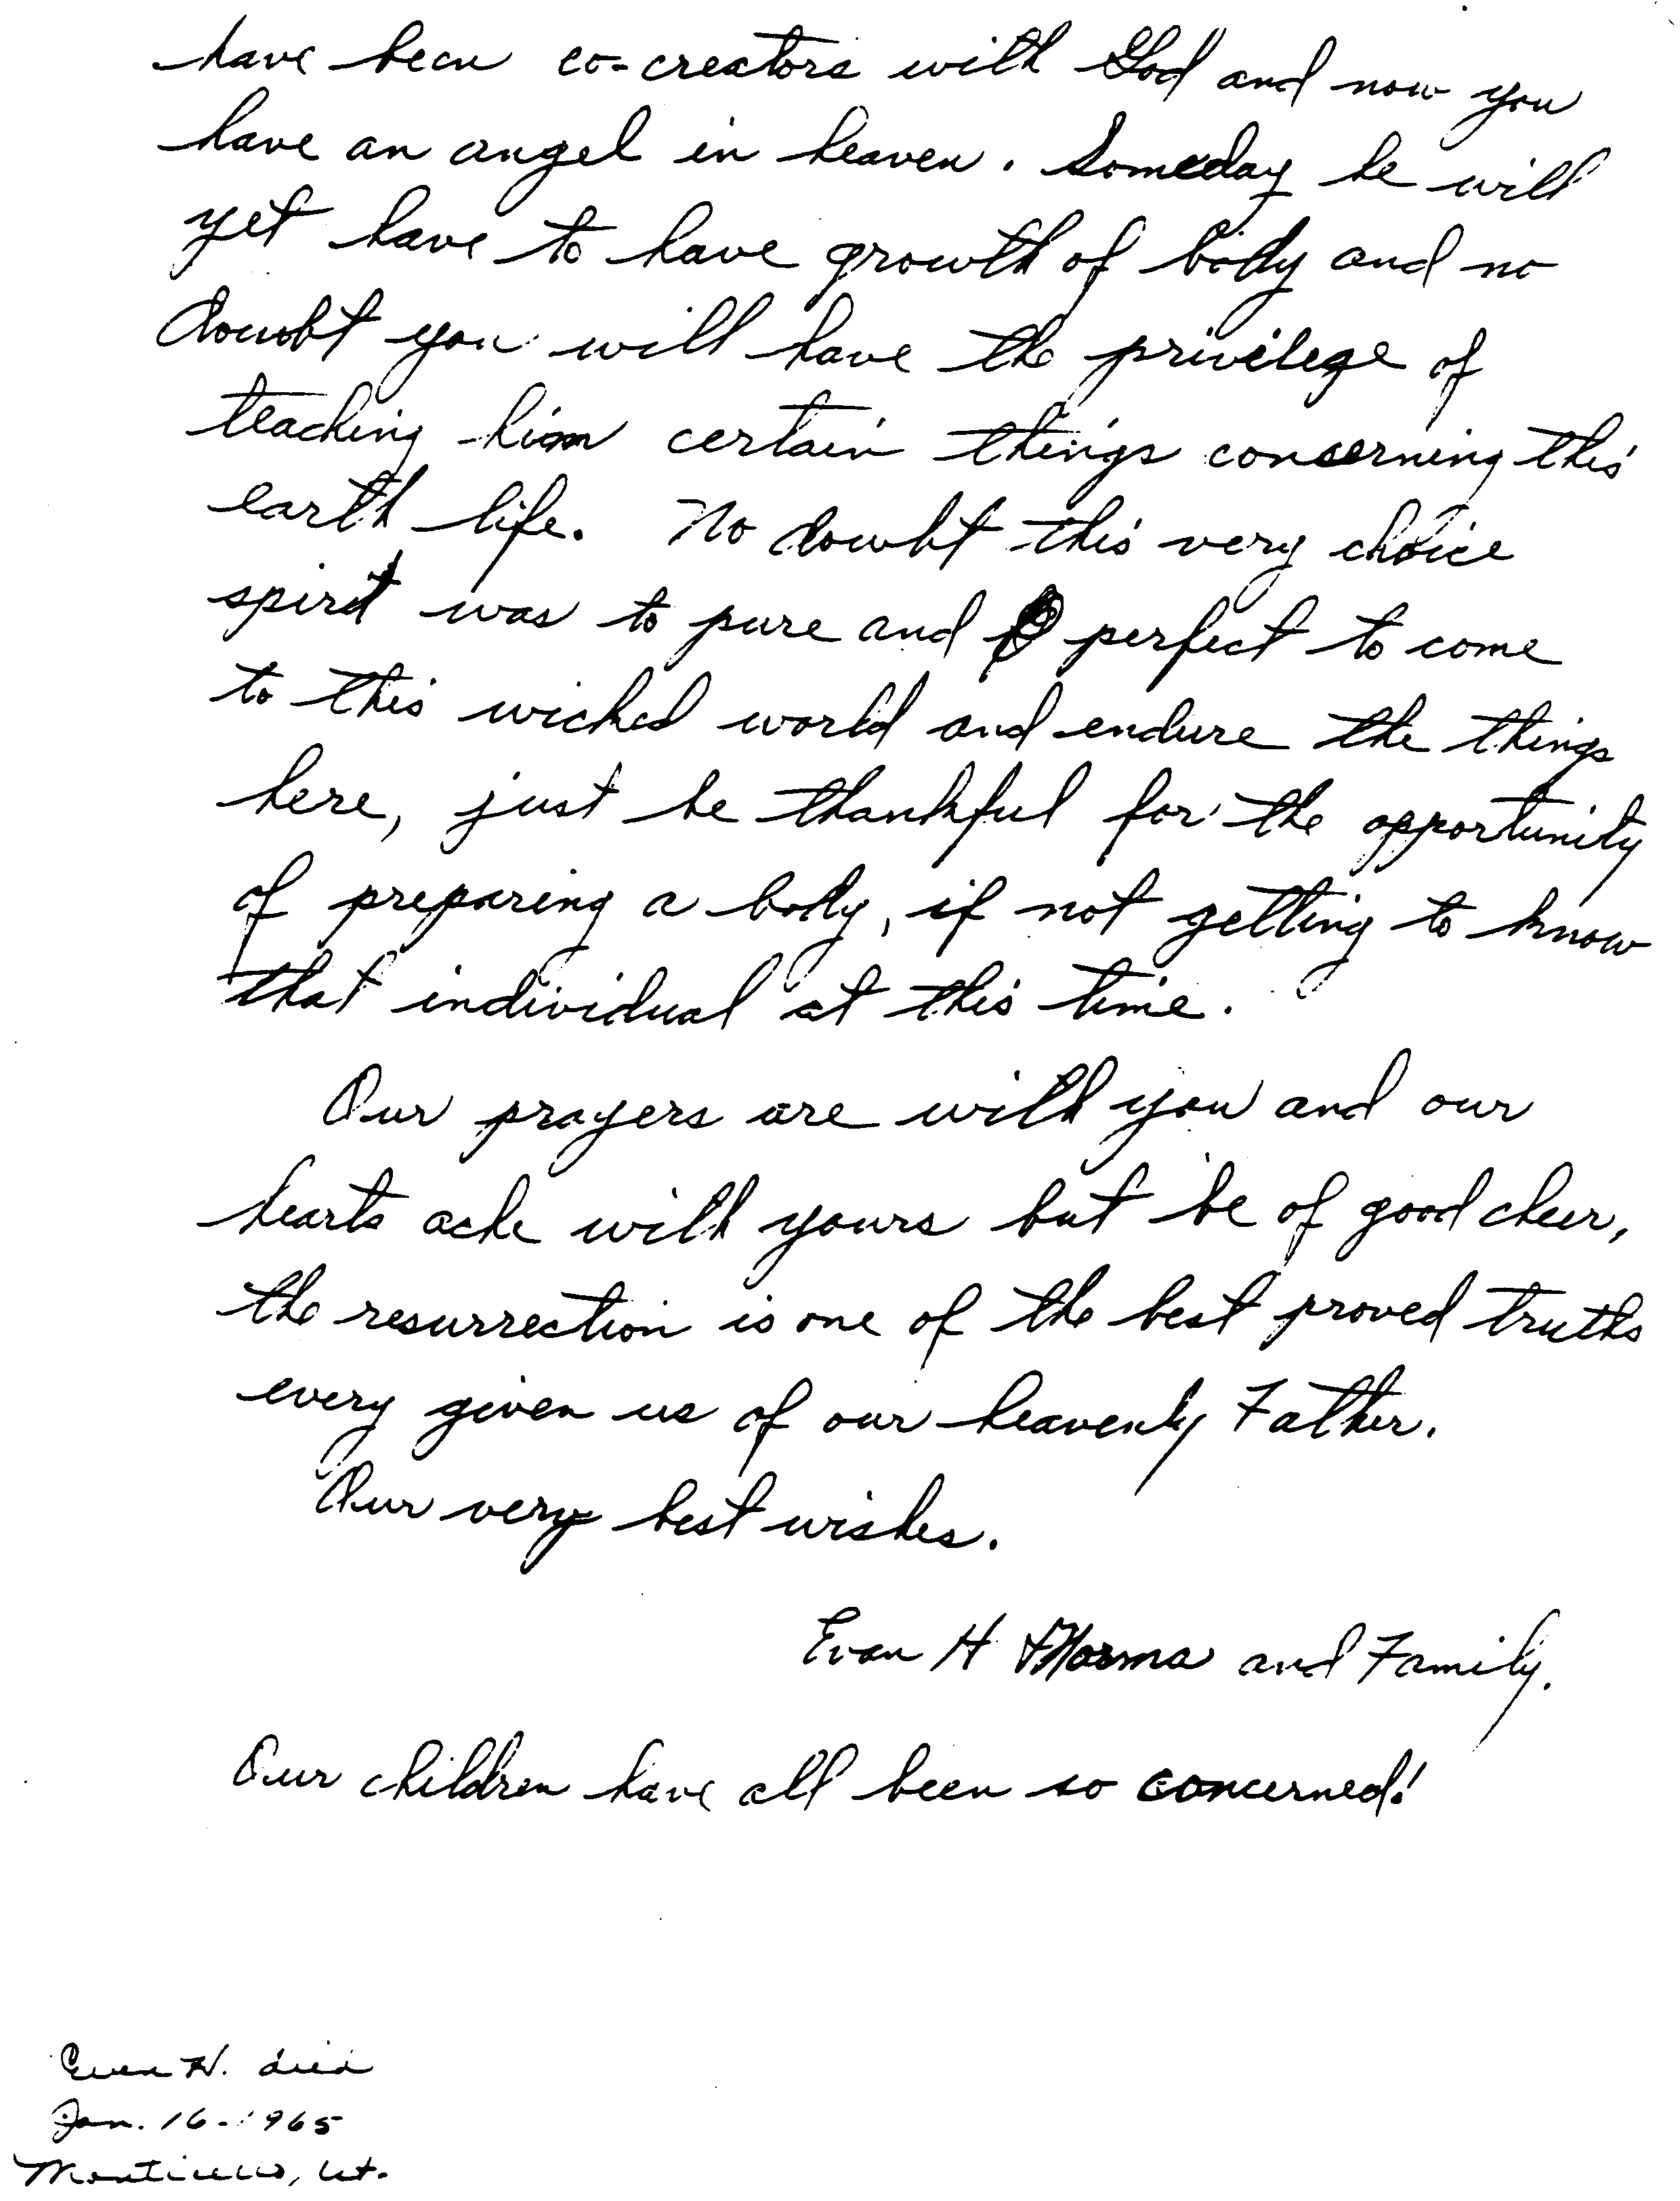 have been co-creators with God and now you
have an angel in heaven. Someday he will
yet have to have growth of body and no
doubt you will have the privilege of
teaching him certain things concerning this
earth life. No doubt this very choice
spirit was to pure and perfect to come
to this wicked world and endure the things
here, just be thankful for the opportunity
of preparing a body, if not getting to know
that individual at this time.
Our prayers are with you and our
hearts ache with yours but be of good cheer,
the resurrection is one of the best proved truths
every given us of our heavenly Father.
Our very best wishes.
Evan H + Norma and Family.
Our children have all been so concerned!
Evan H. died
Jan. 16-1965
Monticello, Ut.